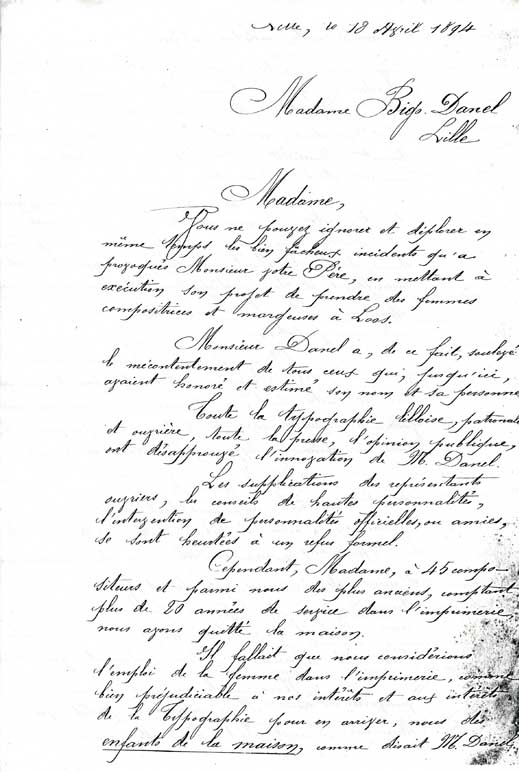 Lille, le 18 Avril 1894
Madame Bigo-Danel
Lille
Madame,
Vous ne pouvez ignorer et déplorer en
même temps les bien fâcheux incidents qu'a
provoqués Monsieur votre Père, en mettant à
exécution son projet de prendre des femmes
compositrices et margeuses à Loos.
Monsieur Danel a, de ce fait, soulevé
le mécontentement de tous ceux qui, jusqu'ici,
avaient honoré et estimé son nom et sa personne
Toute la typographie lilloise, patronale
et ouvrière, toute la presse, l'opinion publique,
ont désapprouvé l'innovation de M. Danel.
Les supplications des représentants
ouvriers, les conseils de hautes personnalités,
l'intervention de personnalités officielles, ou amies,
se sont heurtées à un refus formel.
Cependant, Madame, à 45 compo-
siteurs et parmi nous des plus anciens, comptant
plus de 20 années de service dans l'imprimerie,
nous avons quitté la maison.
Il fallait que nous considérions
l'emploi de la femme dans l'imprimerie, comme
bien préjudiciable à nos intérêts et aux intérêts
de la Typographie pour en arriver, nous des
enfants de la maison, comme disait M. Danel,